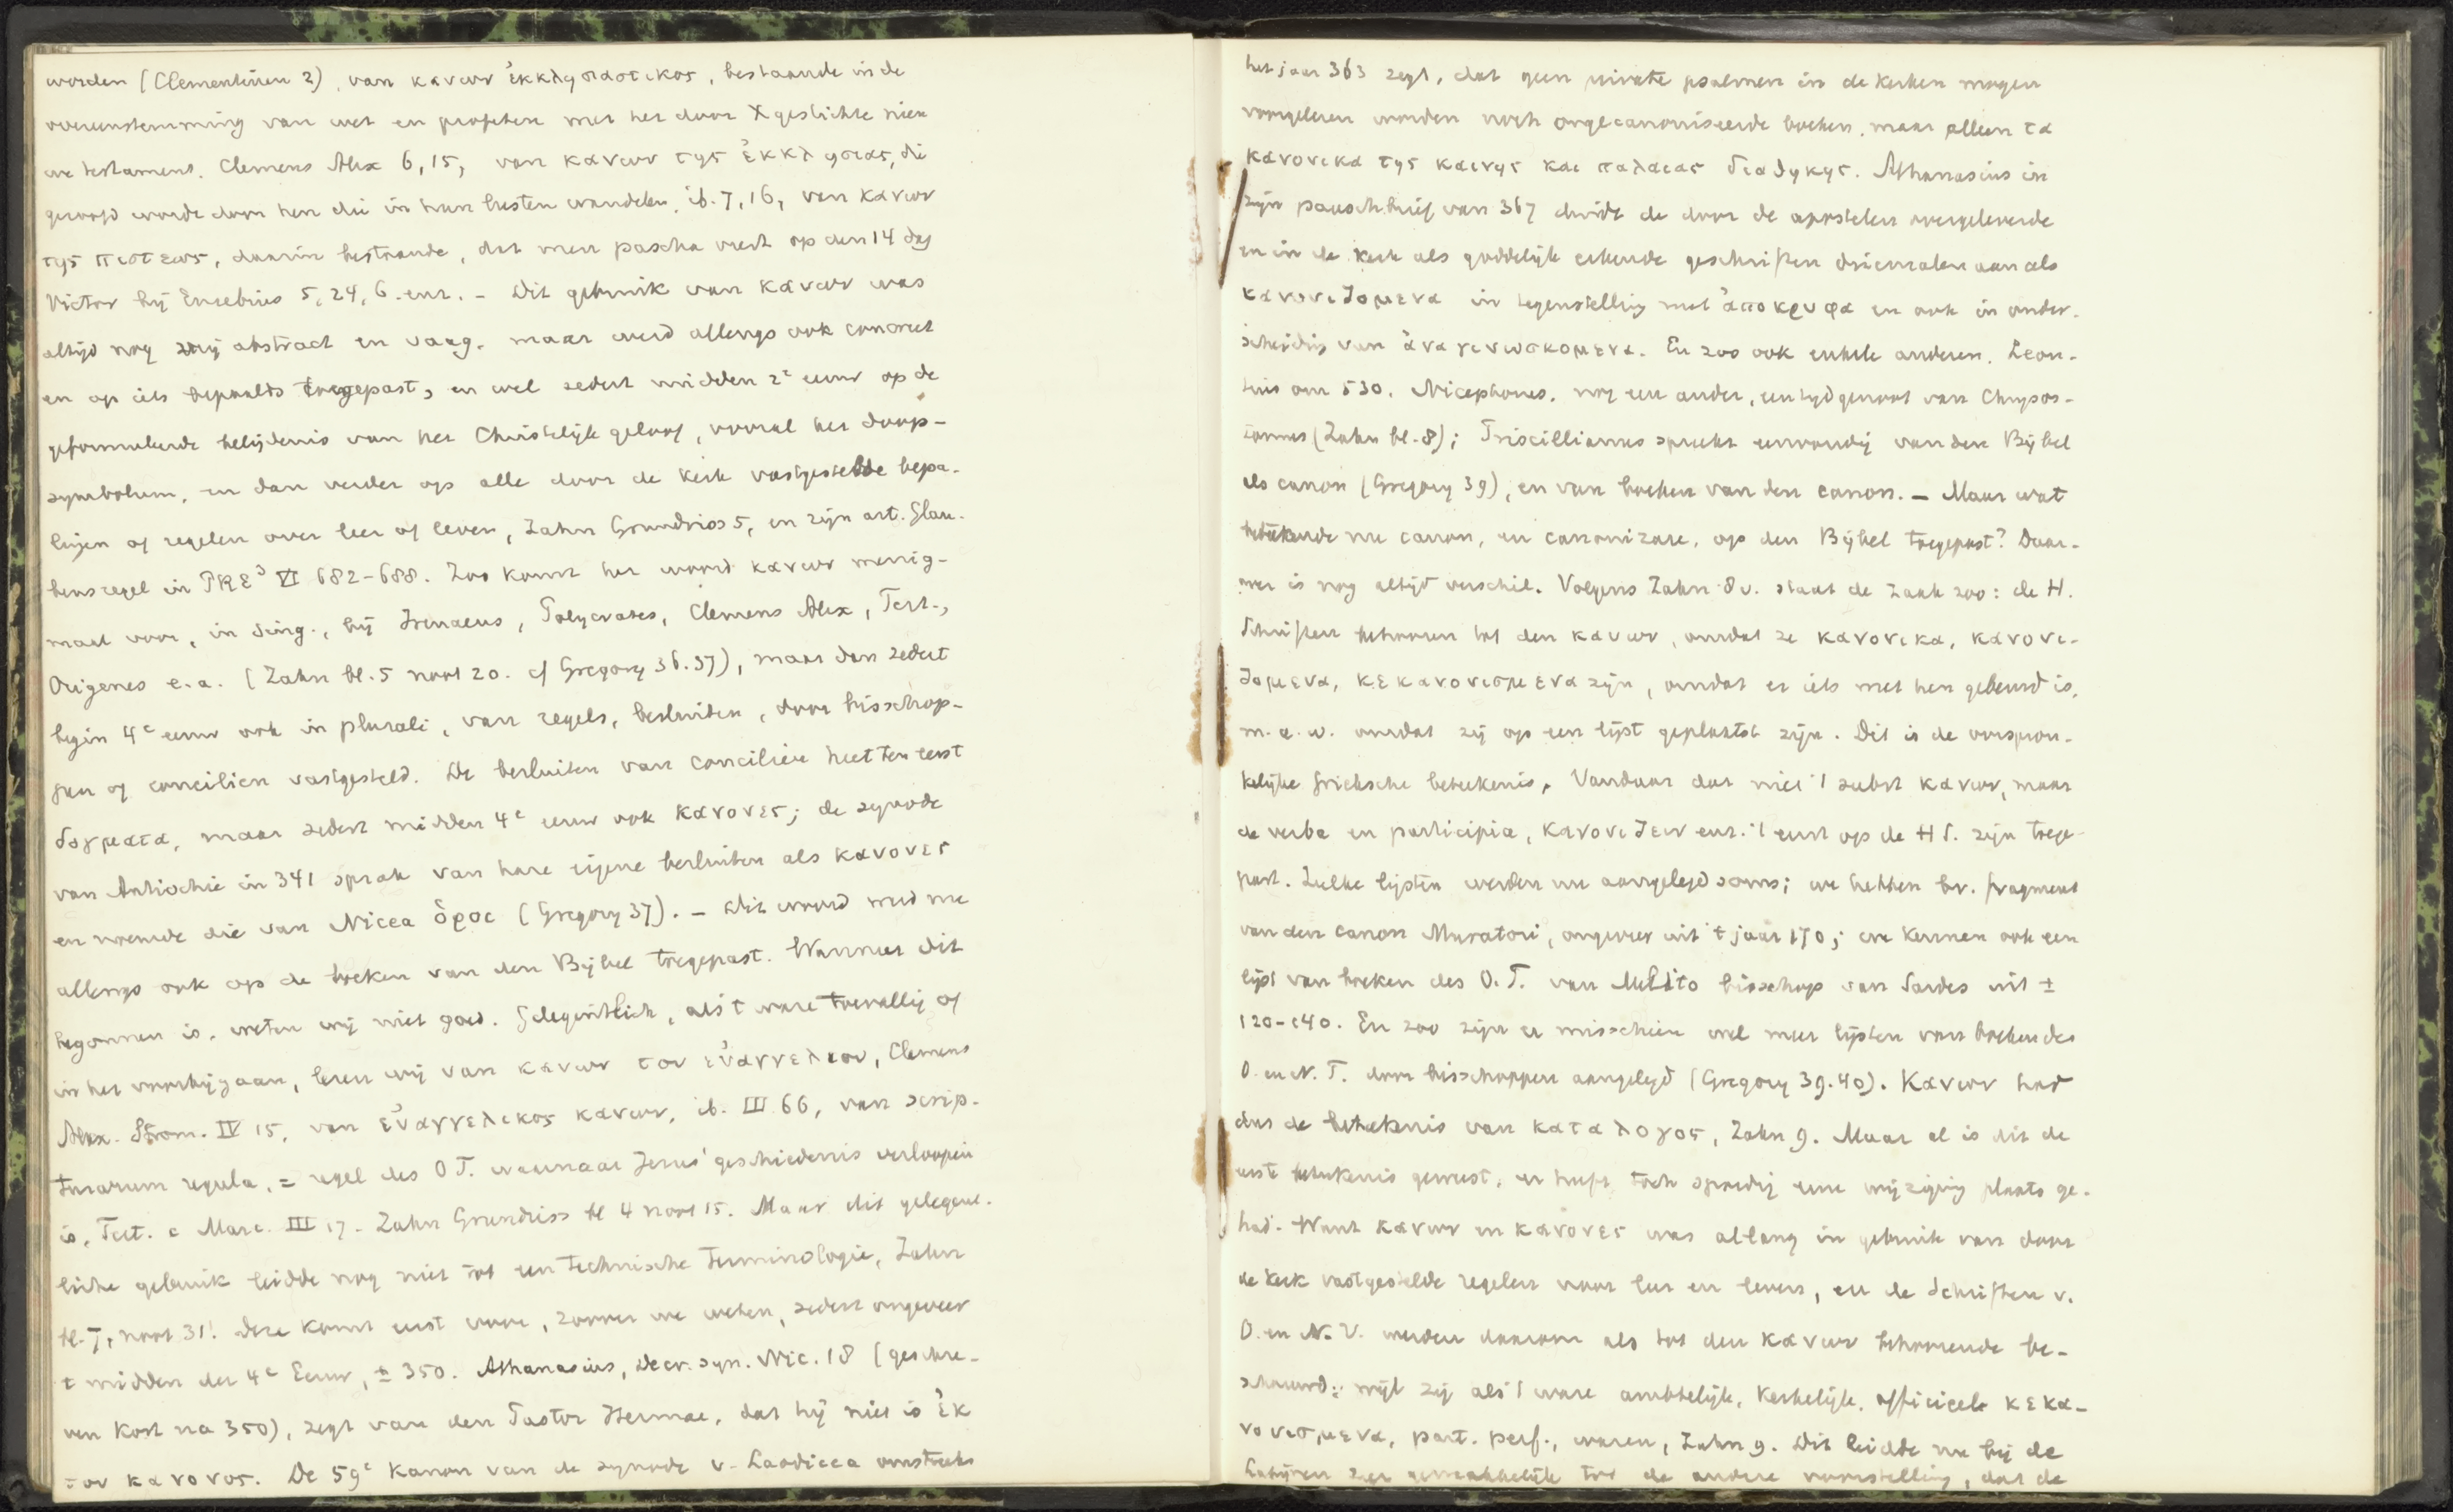 worden (Clementinen 2), van κανων ἐκκλησιαστικος, bestaande in de
overeenstemming van wet en profeten met het door X gestichte nieu
we testament. Clemens Alex 6, 15, van κανων της ἐκκλησιας, die
geroofd wordt door hen die in hun lusten wandelen, ib. 7, 16, van κανων
της πιστεως, daarin bestaande, dat men pascha viert op den 14 dag
Victor bij Eusebius 5, 24, 6. enz. – Dit gebruik van κανων was
altijd nog zeer abstract en vaag. maar werd allengs ook concreet
en op iets bepaalds toegepast, en wel sedert midden 2e eeuw op de
geformuleerde belijdenis van het Christelijk geloof, vooral het doop-
symbolum, en dan verder op alle door de kerk vastgestelde bepa-
lingen of regelen over leer of leven, Zahn Grundriss 5, en zijn art. Glau-
bensregel in PRE³ VI 682-688. Zoo komt het woord κανων menig-
maal voor, in sing., bij Irenaeus, Polycrates, Clemens Alex, Tert.,
Origenes e.a. (Zahn bl. 5 noot 20. cf Gregory 36.37), maar dan sedert
begin 4e eeuw ook in plurali, van regels, besluiten, door bisschop-
pen of concilien vastgesteld. De besluiten van concilien heetten eerst
δογματα, maar sedert midden 4e eeuw ook κανονες; de synode
van Antiochie in 341 sprak van hare eigene besluiten als κανονες
en noemde die van Nicea ὁροι (Gregory 37). – Dit woord werd nu
allengs ook op de boeken van den Bijbel toegepast. Wanneer dit
begonnen is, weten wij niet goed. Gelegentlich, als 't ware toevallig of
in het voorbijgaan, lezen wij van κανων του εὐαγγελιου, Clemens
Alex. Strom. IV 15, van εὐαγγελικος κανων, ib. III 66, van scrip-
turarum regula, = regel des OT. waarnaar Jezus' geschiedenis verloopen
is, Tert. c Marc. III 17. Zahn Grundriss bl 4 noot 15. Maar dit gelegent-
liche gebruik leidde nog niet tot een technische terminologie, Zahn
bl. 7, noot 31. Deze komt eerst voor, zoover we weten, sedert ongeveer
t midden der 4e Eeuw, ± 350. Athanasius, Decr. syn. Nic. 18 (geschre-
ven kort na 350), zegt van den Pastor Hermae, dat hij niet is ἐκ
του κανονος. De 59e Kanon van de synode v. Laodicea omstreeks
het jaar 363 zegt, dat geen private psalmen in de kerken mogen
voorgelezen worden noch ongecanoniseerde boeken, maar alleen τα
κανονικα της καινης και παλαιας διαθηκης. Athanasius in
zijn paaschbrief van 367 duidt de door de apostelen overgeleverde
en in de kerk als goddelijk erkende geschriften driemalen aan als
κανονιζομενα in tegenstelling met ἀποκρυφα en ook in onder-
scheiding van ἀναγινωσκομενα. En zoo ook enkele anderen. Leon-
tius om 530. Nicephorus. nog een ander, een tijdgenoot van Chrysos-
tomus (Zahn bl. 8); Priscillianus spreekt eenvoudig van den Bijbel
als canon (Gregory 39), en van boeken van den canon. – Maar wat
beteekende nu canon, en canonizare, op den Bijbel toegepast? Daar-
over is nog altijd verschil. Volgens Zahn 8 v. staat de zaak zoo: de H.
Schriften behooren tot den κανων, omdat ze κανονικα, κανονι-
ζομενα, κεκανονισμενα zijn, omdat er iets met hen gebeurd is,
m. a. w. omdat zij op een lijst geplaatst zijn. Dit is de oorspron-
kelijke Grieksche beteekenis. Vandaar dat niet 't subst κανων, maar
de verba en participia, κανονιζειν enz. 't eerst op de H S. zijn toege-
past. Zulke lijsten werden nu aangelegd soms; we hebben bv. fragment
van den canon Muratori, ongeveer uit 't jaar 170; we kennen ook een
lijst van boeken des O. T. van Melito bisschop van Sardes uit ±
120-140. En zoo zijn er misschien wel meer lijsten van boeken des
O. en N. T. door bisschoppen aangelegd (Gregory 39.40). Κανων had
dus de beteekenis van καταλογος, Zahn 9. Maar al is dit de
eerste beteekenis geweest, er heeft toch spoedig eene wijziging plaats ge-
had. Want κανων en κανονες was allang in gebruik van door
de kerk vastgestelde regelen voor leer en leven, en de Schriften v.
O. en N. V. werden daarom als tot den κανων behoorende be-
schouwd: wijl zij als 't ware ambtelijk, kerkelijk, officieel κεκα-
νονισμενα, part. perf., waren, Zahn 9. Dit leidde nu bij de
Latijnen zeer gemakkelijk tot de andere voorstelling, dat de